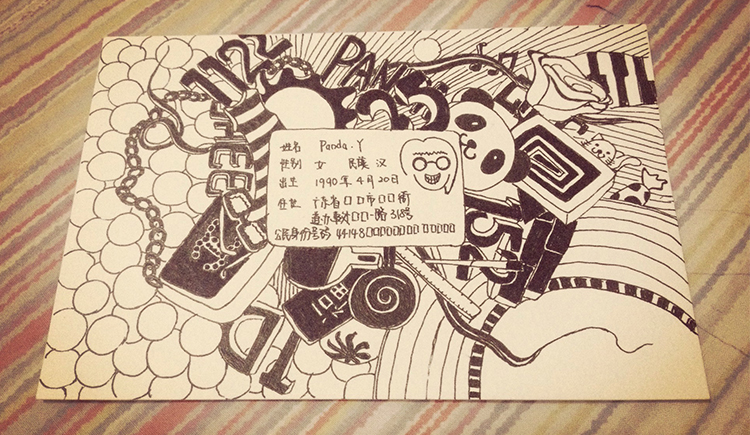 1122
PAND
姓名 Panda.Y
性别 女 民族 汉
出生 1990年4月20日
住址 广东省□□市□□街
道办事处□□一路318号
公民身份号码 44148□□□□□□□□ □□□□□
152
ID